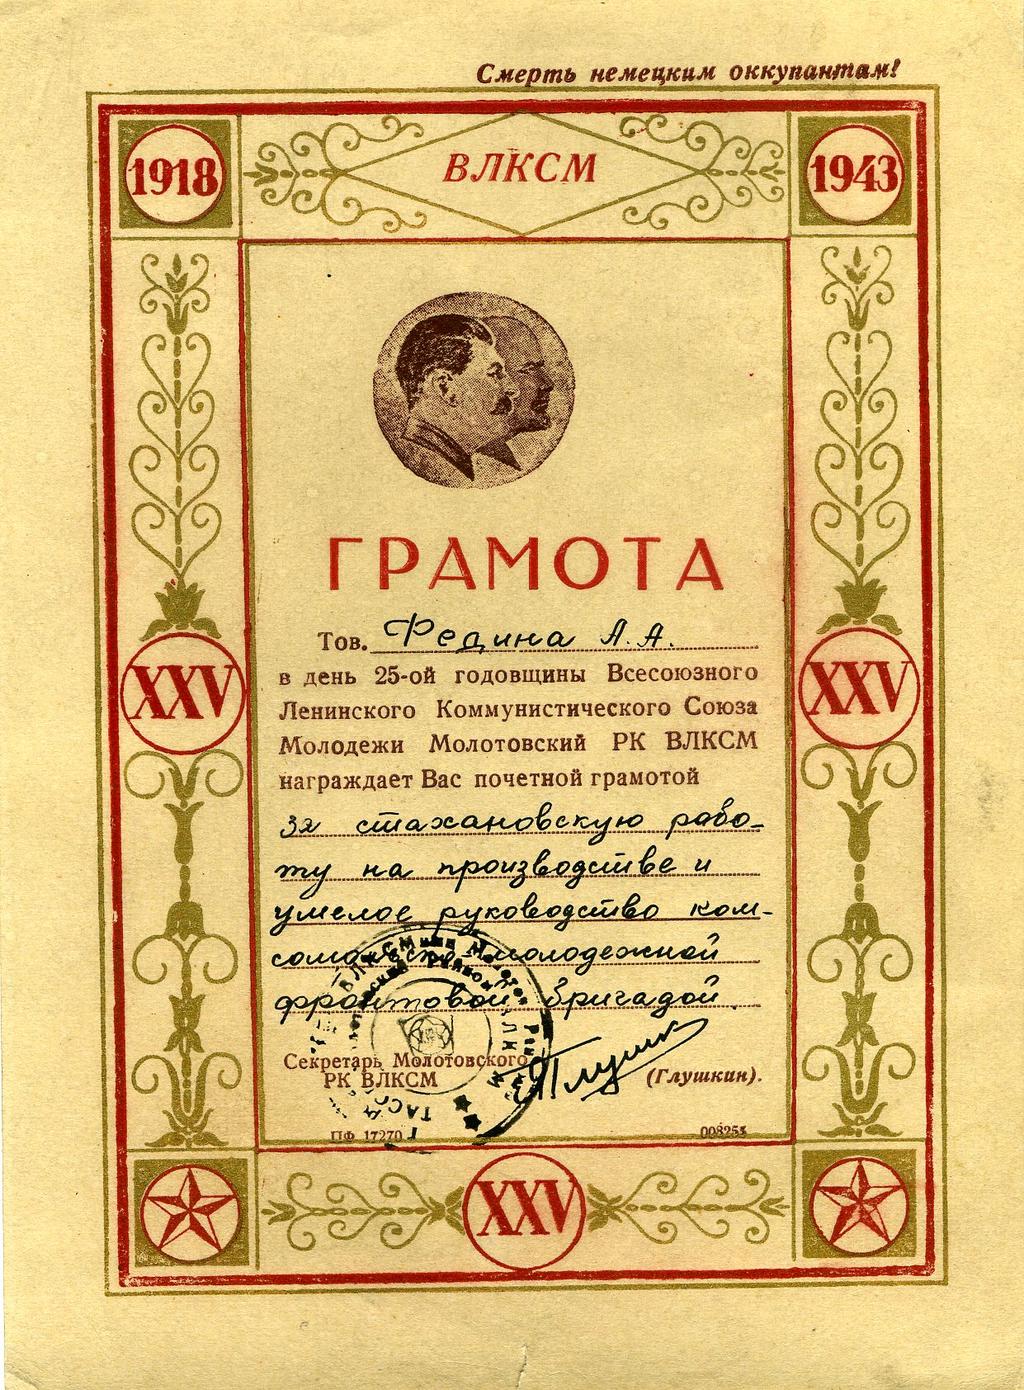 Смерть немецким оккупантам!
1918 ВЛКСМ 1943
ГРАМОТА
Тов. Федина А. А.
в день 25-ой годовщины Всесоюзного
Ленинского Коммунистического Союза
Молодежи Молотовский РК ВЛКСМ
награждает Вас почетной грамотой
XXV XXV
за стахановскую рабо-
ту на производстве и
умелое руководство ком-
сомольско молодежной
фронтовой бригадой.
Секретарь Молотовского
РК ВЛКСМ
(Глушкин).
ПФ 17270 008255
XXV